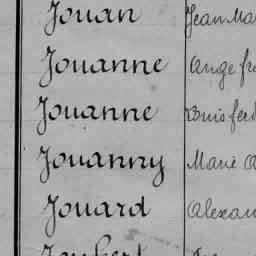 Jouan Jean Ma
Jouanne Ange fr
Jouanne Louis ferd
Jouanny Marie A
Jouard Alexan
Joubert